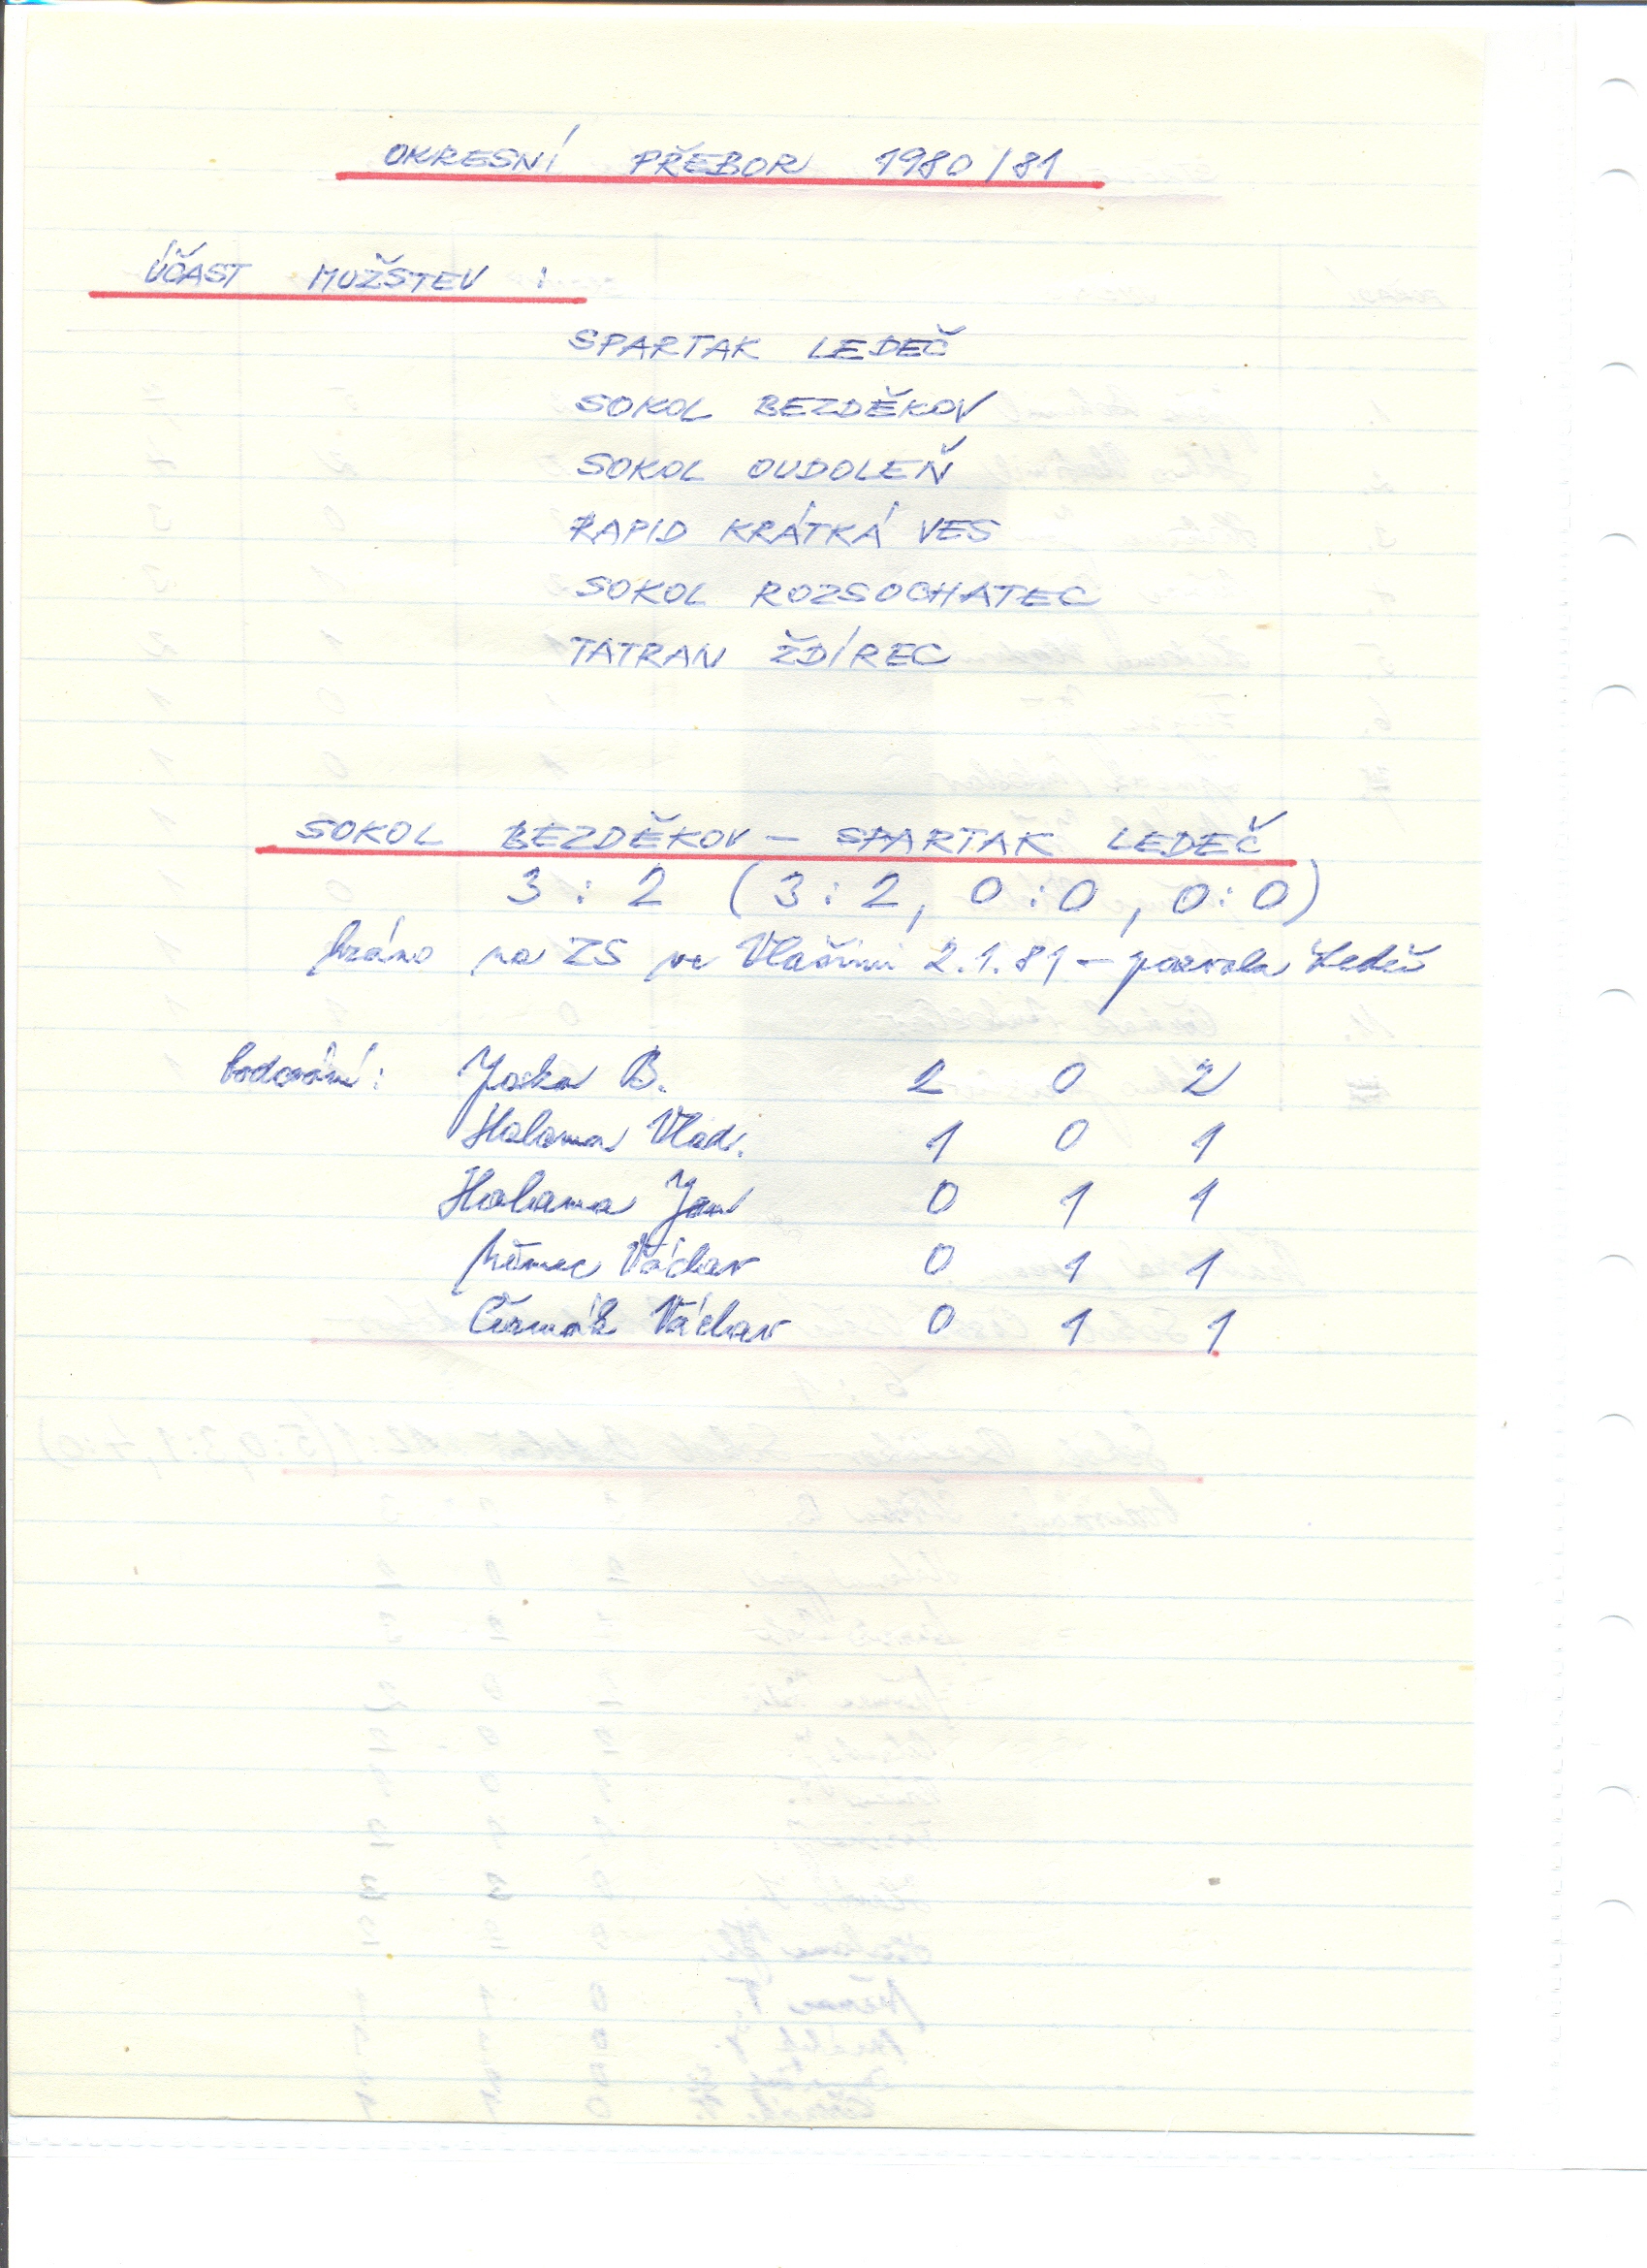 OKRESNÍ PŘEBOR 1980/81
ÚČAST MUŽSTEV :
SPARTAK LEDEČ
SOKOL BEZDĚKOV
SOKOL OUDOLEŇ
RAPID KRÁTKÁ VES
SOKOL ROZSOCHATEC
TATRAN ŽDÍREC
SOKOL BEZDĚKOV – SPARTAK LEDEČ
3 : 2 (3:2, 0:0, 0:0)
hráno na ZS ve Vlašimi 2.1.81 – pozvala Ledeč
bodování: Joska B. 2 0 2
Halama Vlad. 1 0 1
Halama Jan 0 1 1
Němec Václav 0 1 1
Čermák Václav 0 1 1